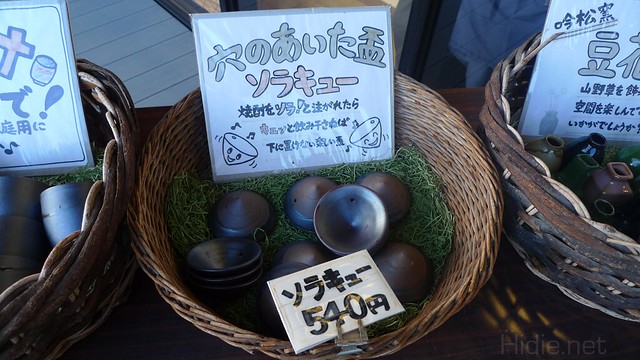 穴のあいた盃
ソラキュー
焼酎をソラ♪と注がれたら
キューッと飲み干さねば
下に置けない楽しい盃
ソラキュー
540円
で!
庭用に
吟松窯
豆花
山野草を飾
空間を楽しんで
いかがでしょうか
Hidie.net